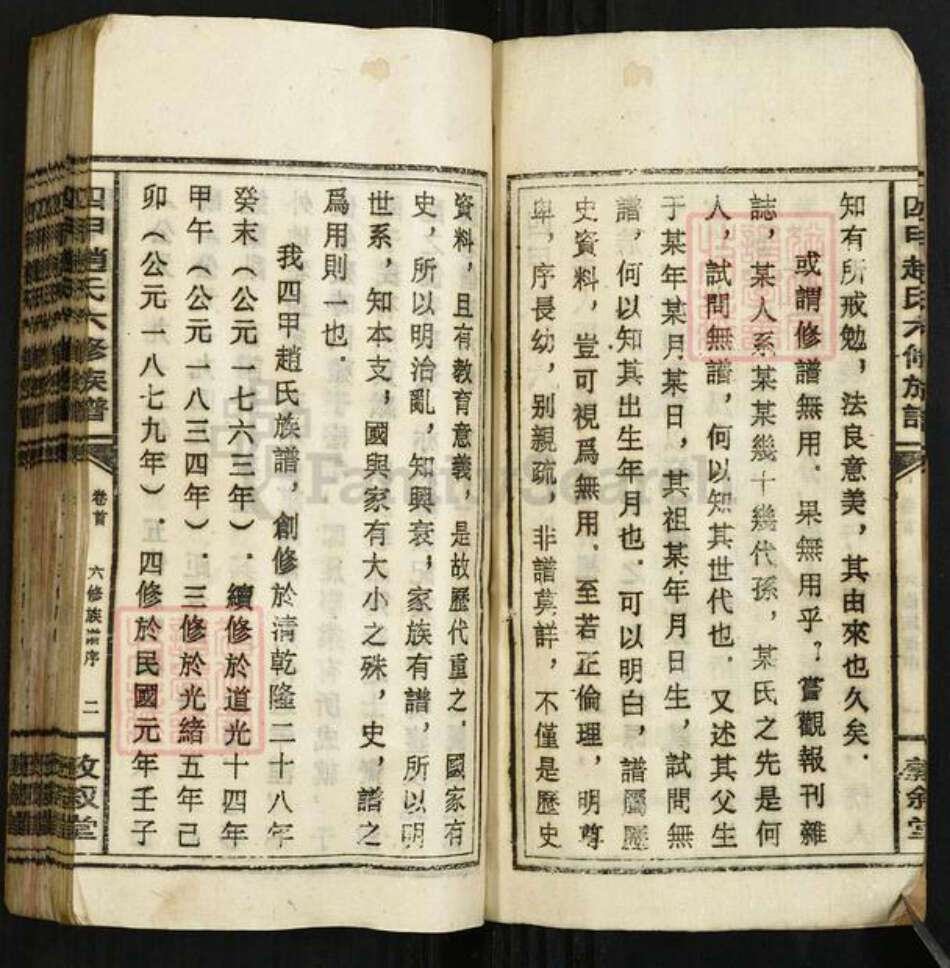 知有所戒勉，法良意美，其由來也久矣．
或謂修譜無用．果無用乎？嘗觀報刊雜
誌，某人系某某幾十幾代孫，某氏之先是何
人，試問無譜，何以知其世代也．又述其父生
于某年某月某日，其祖某年月日生，試問無
譜，何以知其出生年月也．可以明白，譜屬歷
史資料，豈可視爲無用．至若正倫理，明尊
卑，序長幼，别親疏，非譜莫詳，不僅是歷史
資料，且有教育意義，是故歷代重之．國家有
史，所以明治亂，知興衰，家族有譜，所以明
世系，知本支，國與家有大小之殊，史，譜之
爲用則一也．
我四甲趙氏族譜，創修於清乾隆二十八年
癸未（公元一七六三年）．續修於道光十四年
甲午（公元一八三四年）．三修於光緒五年己
卯（公元一八七九年）．五四修於民國元年壬子
四甲趙氏六修族譜
卷首
六修族譜序
二
敘堂
FamilySearch